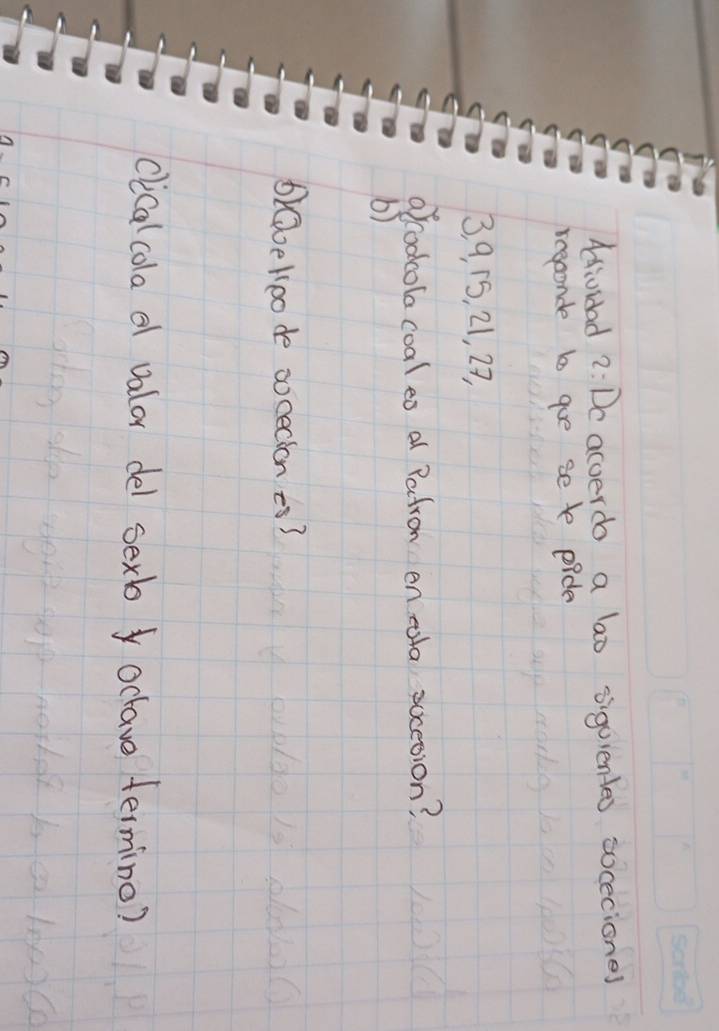 Scribe
Actividad 2: De acuerdo a las siguientes suceciones
responde lo que se te pide
3, 9, 15, 21, 27,
a) cual es el Patron en esta sucesion?
b)
b) Que tipo de sucecion es?
c) Calcula el valor del sexto y octavo termino?